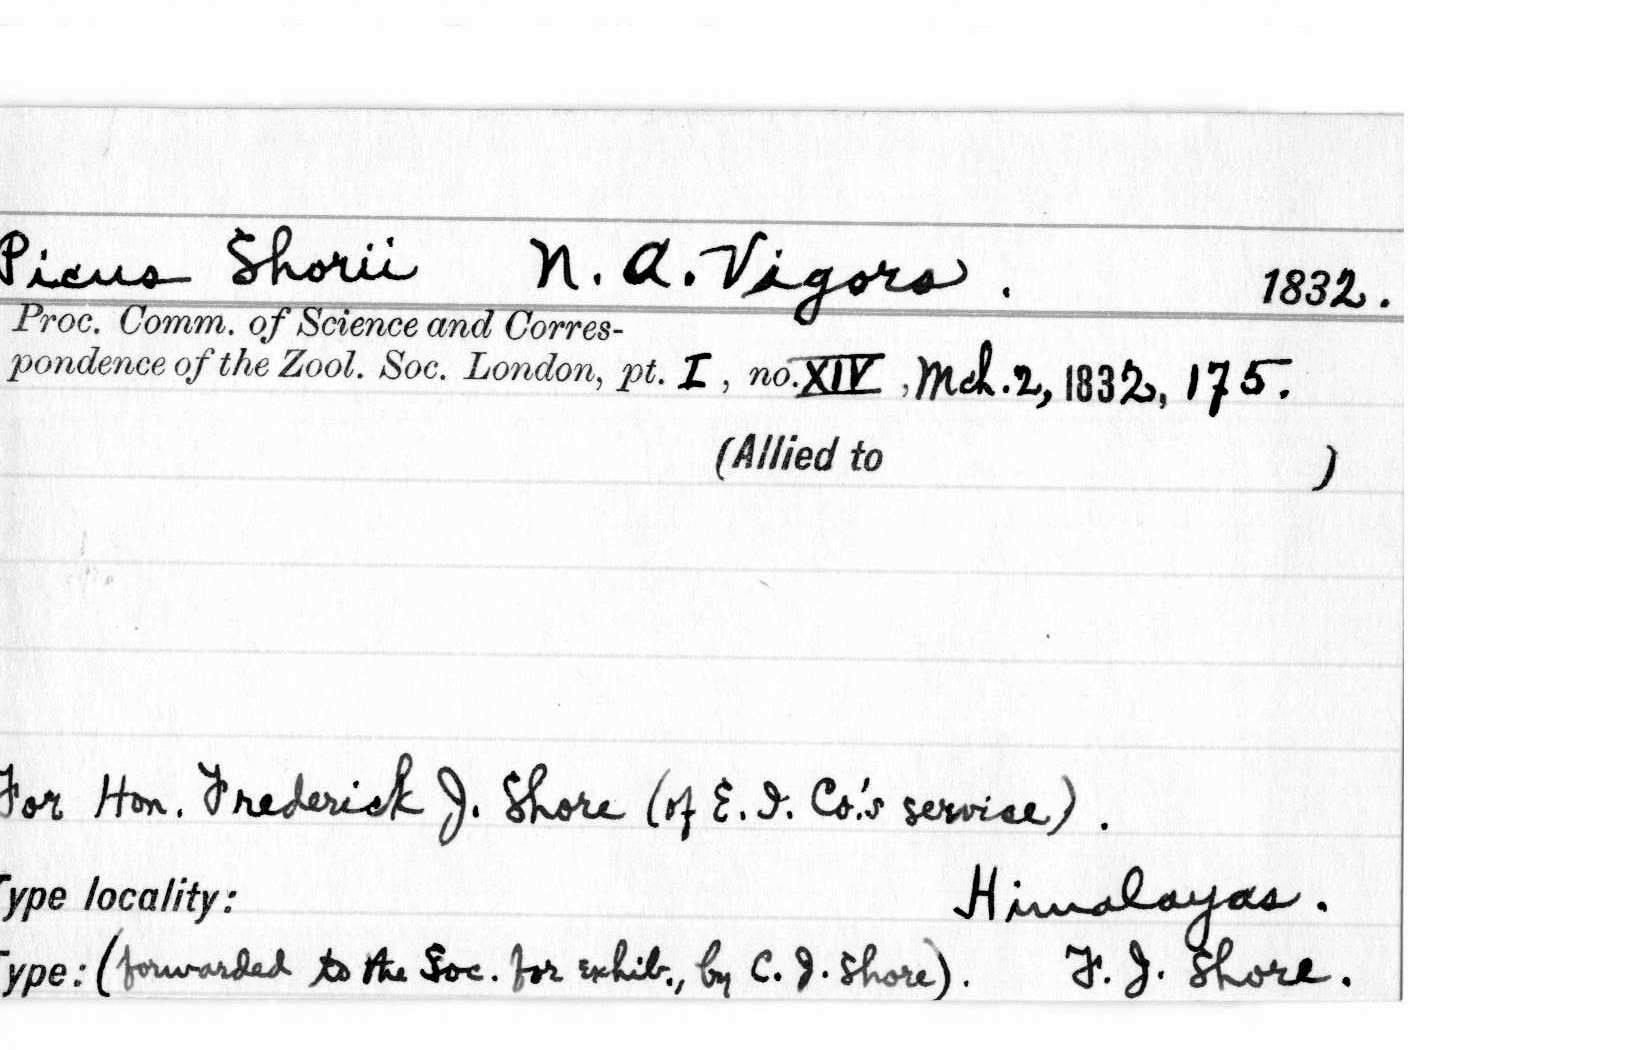 Picus Shorii N. A. Vigors. 1832.
Proc. Comm. of Science and Corres-
pondence of the Zool. Soc. London, pt. I, no. XIV, Mch. 2, 1832, 175.
(Allied to )
For Hon. Frederick J. Shore (of E. I. Co.'s service).
Type locality: Himalayas.
Type: (forwarded to the Soc. for exhib., by C. J. Shore). F. J. Shore.